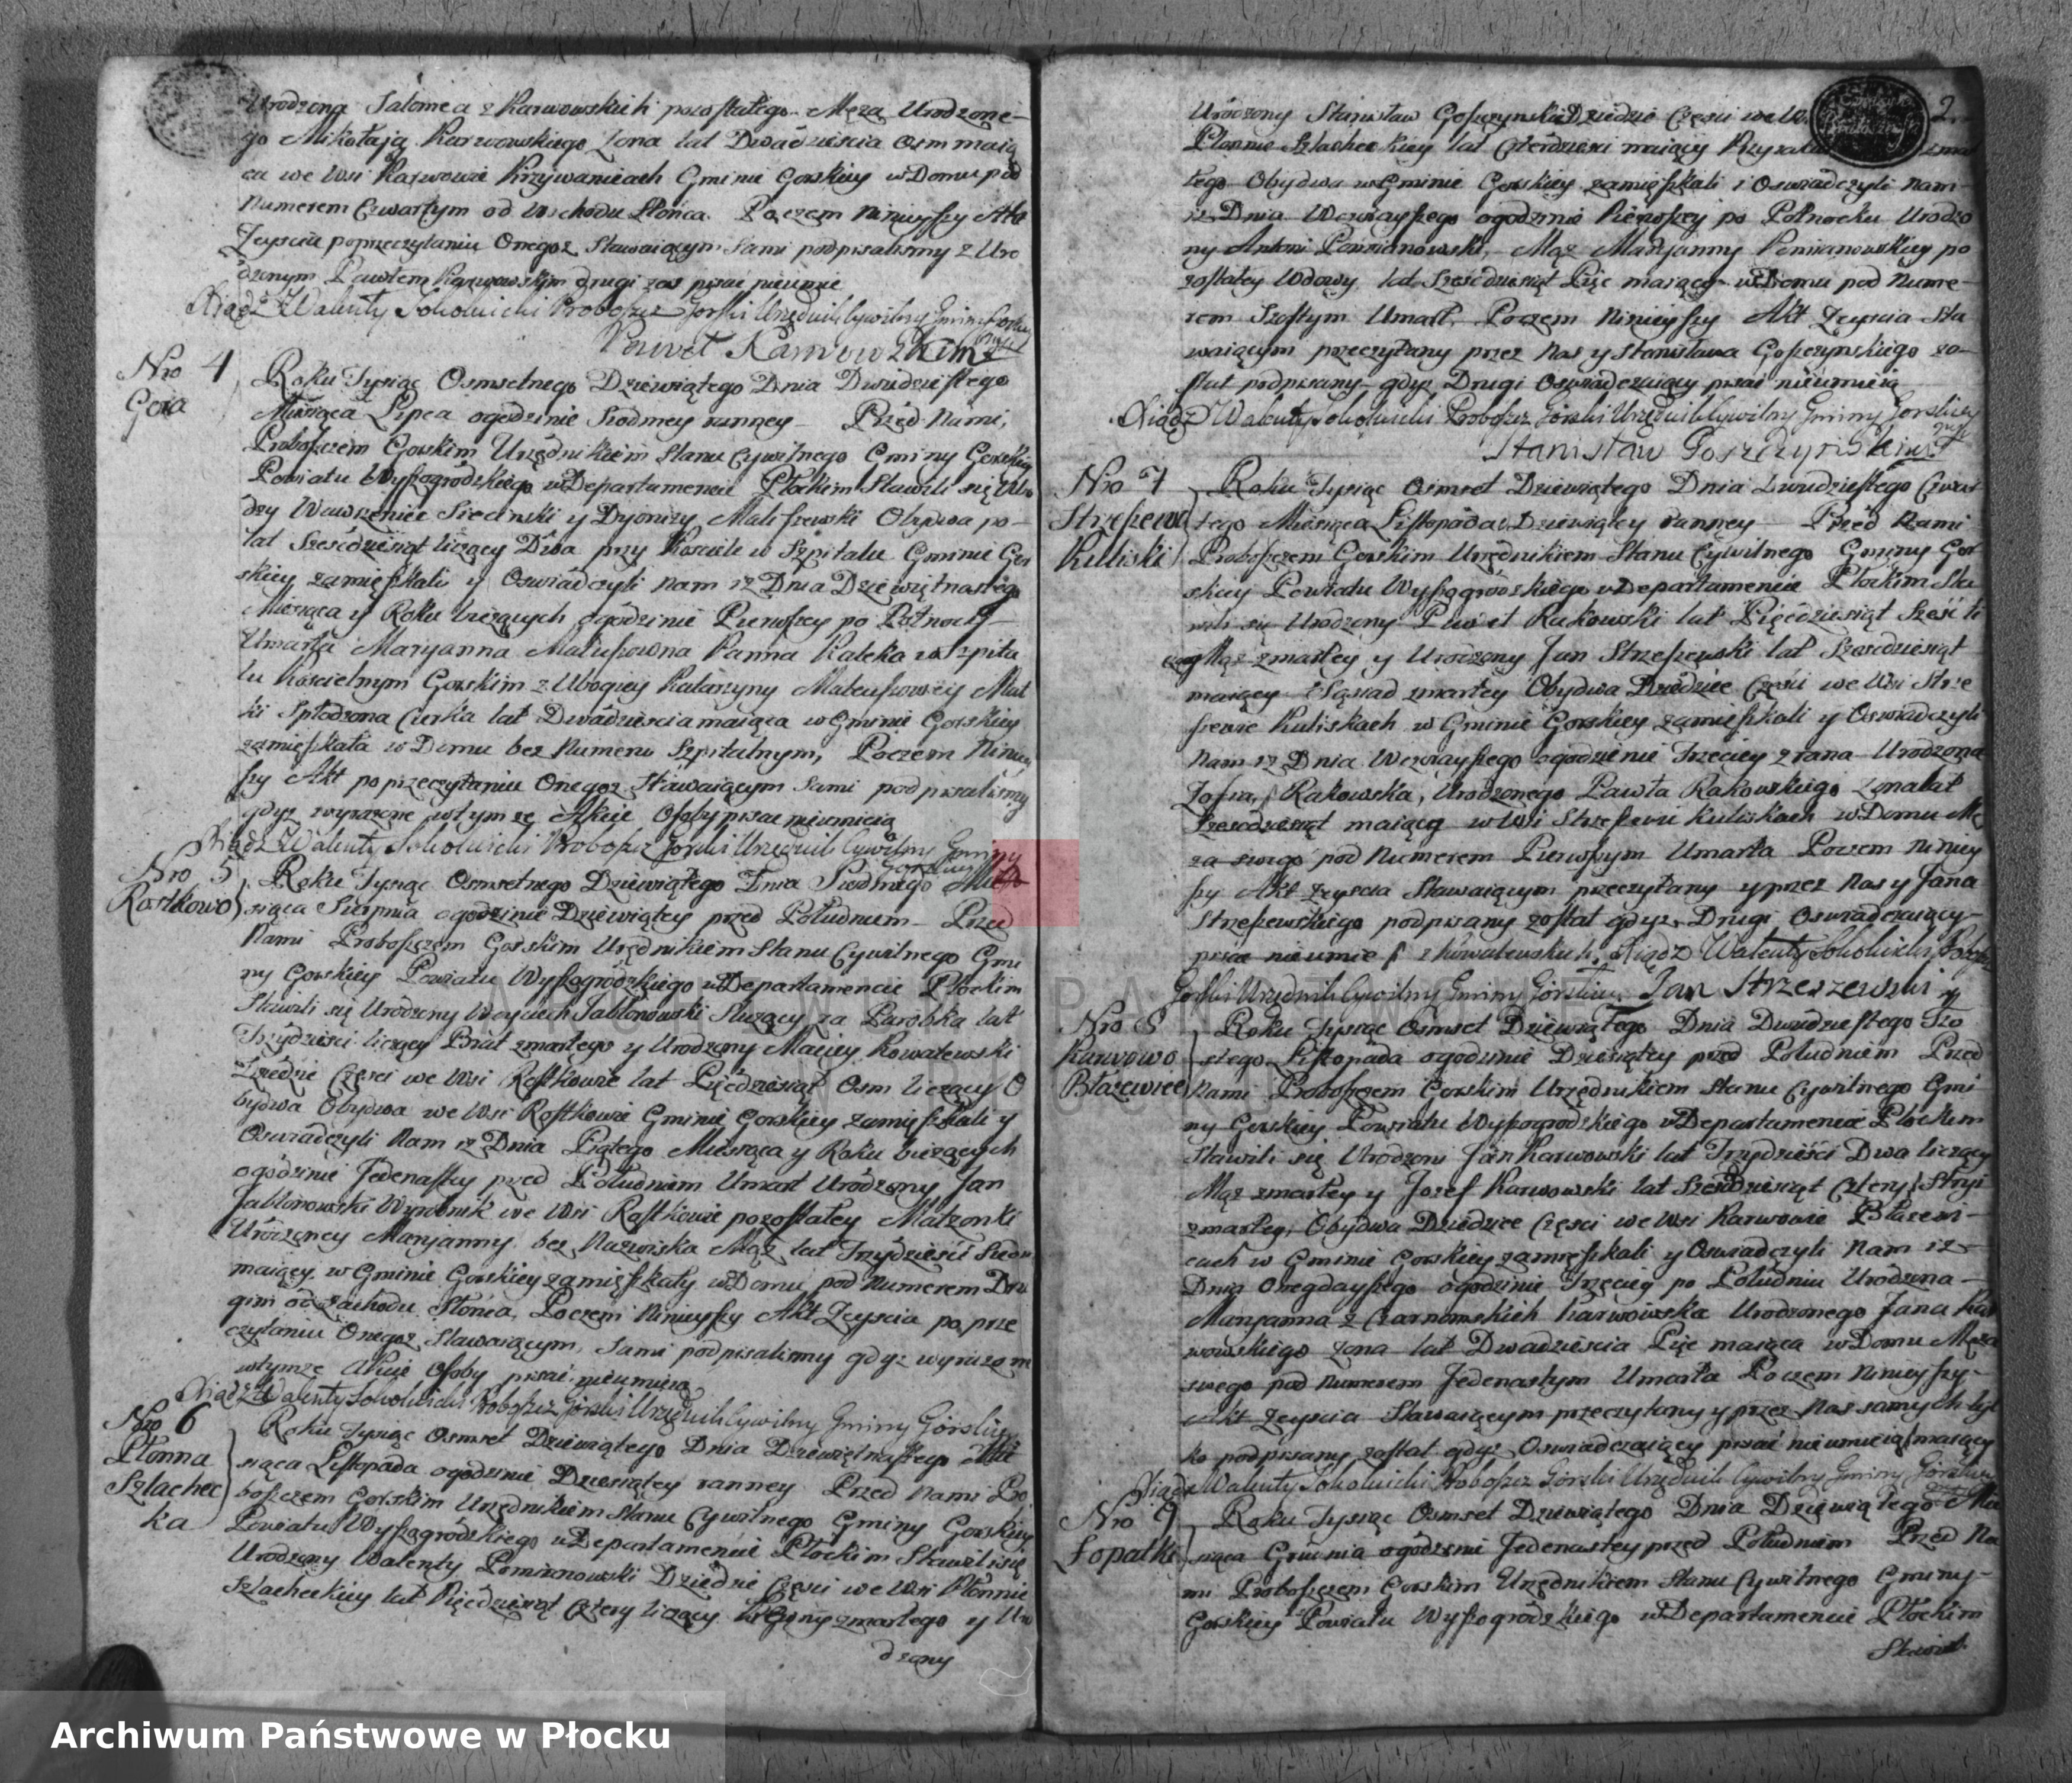 Urodzona Salomea z Karwowskich pozostałego Męża Urodzone-
go Mikołaja Karwowskiego Zona lat Dwadzieścia Osm maią
ca we Wsi Karwowie Krzywanicach Gminie Gorskiey w Domu pod
Numerem Czwartym od Wschodu Słońca. Poczem Ninieyszy Akt
Zeyscia poprzeczytaniu Onegoz Stawaiącym Sami podpisalismy z Uro
dzonym Pawłem Karwowskim drugi zas pisać nieumie
Xiądz Walenty Sokolnicki Proboszcz Gorski Urzędnik Cywilny Gminy Gorskiey
Paweł Karwowski
Nro 4
Gora
Roku Tysiąc Osmsetnego Dziewiątego Dnia Dwudziestego
Miesiąca Lipca ogodzinie Siodmey ranney – Przed Nami,
Proboszczem Gorskim Urzędnikiem Stanu Cywilnego Gminy Gorskiey
Powiatu Wyszogródzkiego w Departamencie Płockim Stawili się Uro
dzy Wawrzeniec Siecinski y Dyonizy Maliszewski Obydwa po-
lat Sześćdziesiąt liczący Dwa przy Kosciele w Szpitalu Gminie Gor
skiey zamięszkali y Oswiadczyli nam iz Dnia Dziewiętnastego
Miesiąca y Roku biezących ogodzinie Pierwszey po Połnocy –
Umarła Maryanna Mateuszowna Panna Kaleka w Szpita
lu Koscielnym Gorskim z Ubogiey Katarzyny Mateuszowey Mat
ki Spłodzona Curka lat Dwadziescia maiąca w Gminie Gorskiey
zamięszkała w Domu bez Numeru Szpitalnym, Poczem Niniey
szy Akt poprzeczytaniu Onegoz Stawaiącym Sami podpisalismy
gdyz wyrazone wtym ze Akcie Osoby pisac nieumieią
Xiądz Walenty Sokolnicki Proboszcz Gorski Urzędnik Cywilny Gminy
Gorskiey
Nro 5
Rostkowo
Roku Tysiąc Osmsetnego Dziewiątego Dnia Siodmego Mie
siąca Sierpnia ogodzinie Dziewiątey przed Południem – Przed
Nami Proboszczem Gorskim Urzędnikiem Stanu Cywilnego Gmi
ny Gorskiey Powiatu Wyszogródzkiego w Departamencie Płockim
Stawili się Urodzony Woyciech Jabłonowski Słuzący za Parobka lat
Trzydziesci liczący Brat zmarłego y Urodzony Maciey Kowalewski
Dziedzic Częsci we Wsi Rostkowie lat Pięcdziesiąt Osm liczący O
bydwa Obydwa we Wsi Rostkowie Gminie Gorskiey zamięszkali y
Oswiadczyli Nam iz Dnia Piątego Miesiąca y Roku biezących
ogodzinie Jedenastey przed Południem Umarł Urodzony Jan
Jabłonowski Wyrobnik we Wsi Rostkowie pozostałey Małzonki
Urodzoney Maryanny bez Nazwiska Mąz lat Trzydziesci Siedm
maiący w Gminie Gorskiey zamięszkały w Domu pod Numerem Dru
gim od Zachodu Słońca, Poczem Ninieyszy Akt Zeyscia po prze
czytaniu Onegoz Stawaiącym, Sami podpisalismy gdyz wyrazone
wtymze Akcie Osoby pisać nieumieią
Xiądz Walenty Sokolnicki Proboszcz Gorski Urzędnik Cywilny Gminy Gorskiey
Nro 6
Płonna
Szlachec
ka
Roku Tysiąc Osmset Dziewiątego Dnia Dziewiętnastego Mie
siąca Listopada ogodzinie Dziesiątey ranney Przed Nami Pro
boszczem Gorskim Urzędnikiem Stanu Cywilnego Gminy Gorskiey
Powiatu Wyszogródzkiego w Departamencie Płockim Stawił się
Urodzony Walenty Pomianowski Dziedzic Częsci we Wsi Płonnie
Szlacheckiey lat Pięcdziesiąt Cztery liczący zmarłego y Uro
dzony
2.
Urodzony Stanisław Goszczynski Dziedzic Częsci we W
Płonnie Szlacheckiey lat Czterdziesci maiący zmar
łego Obydwa w Gminie Gorskiey zamięszkali i Oswiadczyli Nam
iz Dnia Wczorayszego ogodzinie Pierwszey po Połnocku Urodzo
ny Antoni Pomianowski, Mąz Maryanny Pomianowskiey po
zostałey Wdowy lat Szescdziesiąt Pięc maiący w Domu pod Nume-
rem Szostym Umarł. Poczem Ninieyszy Akt Zeyscia Sta
waiącym przeczytany przez Nas y Stanisława Goszczynskiego zo-
stał podpisany gdyz Drugi Oswiadczaiący pisać nieumieią
Xiądz Walenty Sokolnicki Proboszcz Gorski Urzędnik Cywilny Gminy Gorskiey
Stanisław Goszczynski
Nro 7
Strzeszewo
Kuliski
Roku Tysiąc Osmset Dziewiątego Dnia Dwudziestego Czwar
tego Miesiąca Listopada Dziewiątey ranney – Przed Nami
Proboszczem Gorskim Urzędnikiem Stanu Cywilnego Gminy Gor
skiey Powiatu Wyszogródzkiego w Departamencie Płockim Sta
wili się Urodzony Paweł Rakowski lat Pięcdziesiąt Szesć li
czący Mąz zmarłey y Urodzony Jan Strzeszewski lat Szescdziesiąt
maiący Sąsiad zmarłey Obydwa Dziedzice Częsci we Wsi Strze
szewie Kuliskach w Gminie Gorskiey zamieszkali y Oswiadczyli
Nam iz Dnia Wczorayszego ogodzinie Trzeciey z rana Urodzona
Zofia, Rakowska, Urodzonego Pawła Rakowskiego Zona lat
Szescdziesiąt maiąca w Wsi Strzeszewie Kuliskach w Domu Mę
za swego pod Numerem Pierwszym Umarła Poczem niniey
szy Akt Zeyscia Stawaiącym przeczytany y przez Nas y Jana
Strzeszewskiego podpisany został gdyz Drugi Oswiadczaiący
pisac nieumie z Kowalewskich, Xiądz Walenty Sokolnicki Proboszcz
Gorski Urzędnik Cywilny Gminy Gorskiey Jan Strzeszewski
Nro 8
Karwowo
Błazewice
Roku Tysiąc Osmset Dziewiątego Dnia Dwudziestego Szo
stego Listopada ogodzinie Dziesiątey przed Południem Przed
Nami Proboszczem Gorskim Urzędnikiem Stanu Cywilnego Gmi
ny Gorskiey Powiatu Wyszogrodzkiego w Departamencie Płockim
Stawili się Urodzeni Jan Karwowski lat Trzydziesci Dwa liczący
Mąz zmarłey y Jozef Karwowski lat Szescdziesiąt Cztery Stryi
zmarłey, Obydwa Dziedzice Częsci we Wsi Karwowie Błazewi-
cach w Gminie Gorskiey zamięszkali y Oswiadczyli Nam iz
Dnia Onegdayszego ogodzinie Trzeciey po Południu Urodzona
Maryanna z Czarnomskich Karwowska Urodzonego Jana Kar
wowskiego Zona lat Dwadziescia Pięc maiąca w Domu Męza
swego pod Numerem Jedenastym Umarła Poczem Ninieyszy
Akt Zeyscia Stawaiącym przeczytany y przez Nas samych tyl
ko podpisany został gdyz Oswiadczaiący pisać nieumieią maiący
Xiądz Walenty Sokolnicki Proboszcz Gorski Urzędnik Cywilny Gminy Gorskiey
Nro 9
Łopatki
Roku Tysiąc Osmset Dziewiątego Dnia Dziewiątego Mie
siąca Grudnia ogodzinie Jedenastey przed Południem Przed Na
mi Proboszczem Gorskim Urzędnikiem Stanu Cywilnego Gminy
Gorskiey Powiatu Wyszogródzkiego w Departamencie Płockim
Stawili
Archiwum Państwowe w Płocku